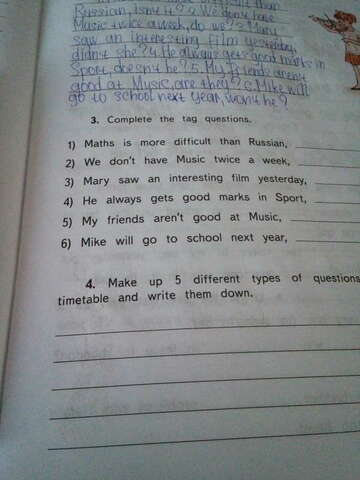 difficult than
Russian, isn't it? 2 We don't have
Music twice a week, do we? 3 Mary
saw an interesting film yesterday,
didn't she? 4. He always gets good marks in
Sport, doesn't he? 5. My friends aren't
good at Music, are they? 6. Mike will
go to school next year, won't he?
3. Complete the tag questions.
1) Maths is more difficult than Russian,
2) We don't have Music twice a week,
3) Mary saw an interesting film yesterday,
4) He always gets good marks in Sport,
5) My friends aren't good at Music,
6) Mike will go to school next year,
4. Make up 5 different types of questions
timetable and write them down.